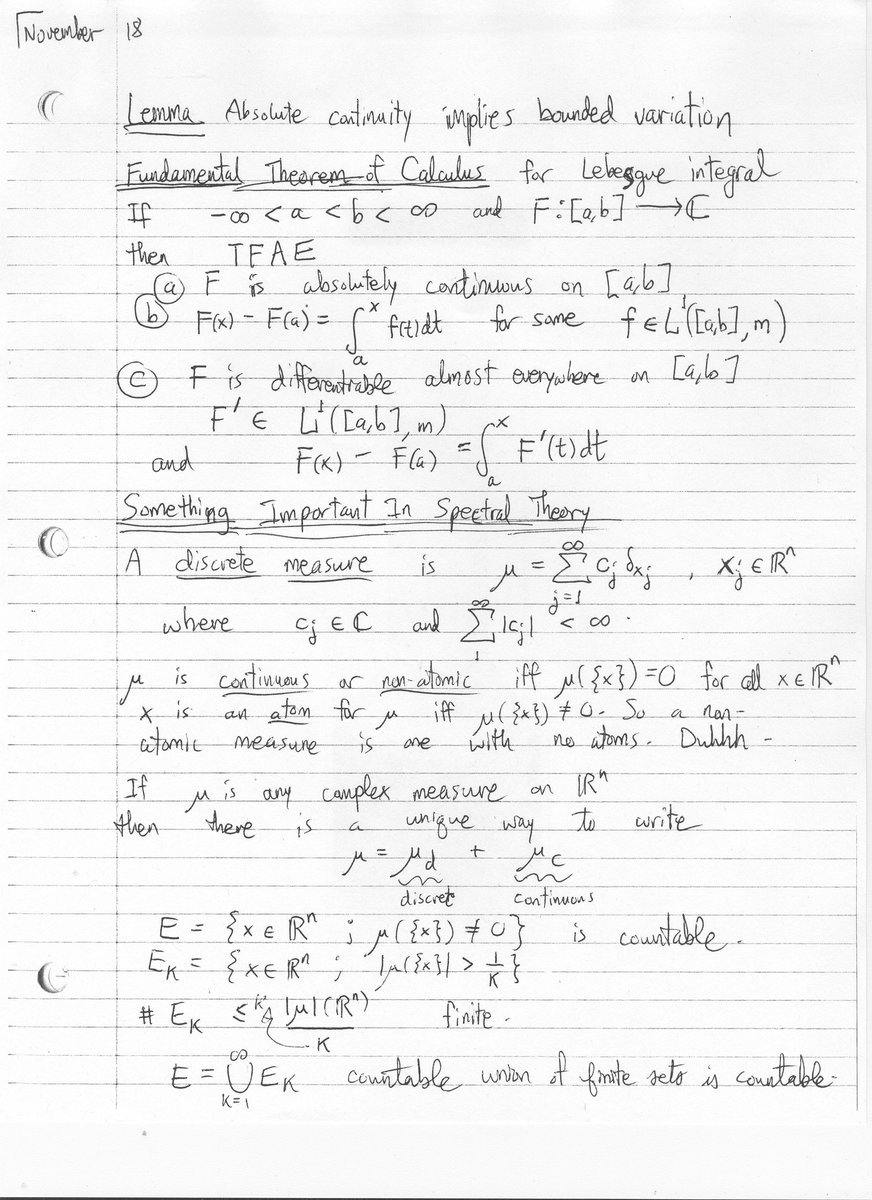 November 18
Lemma Absolute continuity implies bounded variation
Fundamental Theorem of Calculus for Lebesgue integral
If -∞ < a < b < ∞ and F: [a,b] → ℂ
then TFAE
(a) F is absolutely continuous on [a,b]
(b) F(x) - F(a) = ∫_a^x f(t)dt for some f ∈ L¹([a,b], m)
(c) F is differentiable almost everywhere on [a,b]
F' ∈ L¹([a,b], m)
and F(x) - F(a) = ∫_a^x F'(t)dt
Something Important In Spectral Theory
A discrete measure is μ = ∑_{j=1}^∞ c_j δ_{x_j} , x_j ∈ ℝⁿ
where c_j ∈ ℂ and ∑_1^∞ |c_j| < ∞.
μ is continuous or non-atomic iff μ({x}) = 0 for all x ∈ ℝⁿ
x is an atom for μ iff μ({x}) ≠ 0. So a non-
atomic measure is one with no atoms. Duhhh -
If μ is any complex measure on ℝⁿ
then there is a unique way to write
μ = μ_d + μ_c
discrete continuous
E = {x ∈ ℝⁿ ; μ({x}) ≠ 0} is countable.
E_K = {x ∈ ℝⁿ ; |μ({x}| > 1/K}
# E_K ≤ K |μ|(ℝⁿ) finite.
K
E = ⋃_{K=1}^∞ E_K countable union of finite sets is countable.